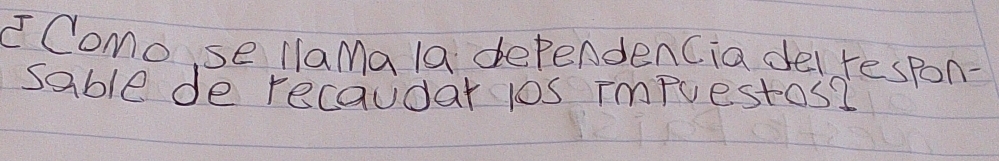 ¿Como se llama la dependencia del respon-
sable de recaudar los impuestos?